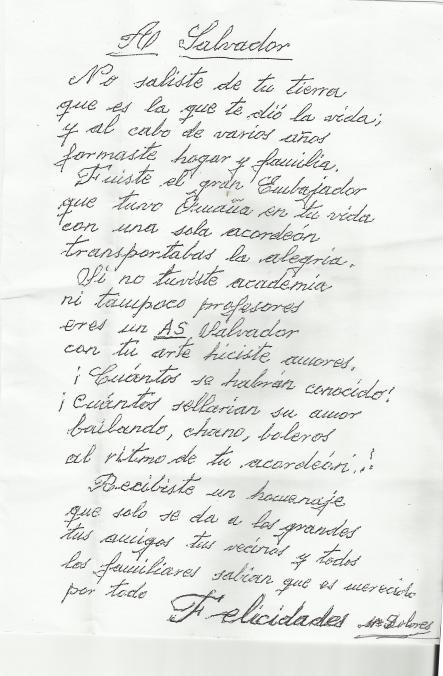 As Salvador
No saliste de tu tierra
que es la que te dió la vida;
y al cabo de varios años
formaste hogar y familia.
Fuiste el gran Embajador
que tuvo Omaña en tu vida
con una sola acordeón
transportabas la alegria.
Si no tuviste academia
ni tampoco profesores
eres un AS Salvador
con tu arte hiciste amores.
¡Cuántos se habrán conocido!
¡Cuántos sellarian su amor
bailando, chano, boleros
al ritmo de tu acordeón..!
Recibiste un homenaje
que solo se da a los grandes
tus amigos tus vecinos y todos
los familiares sabian que es merecido
por todo
Felicidades Mª Dolores